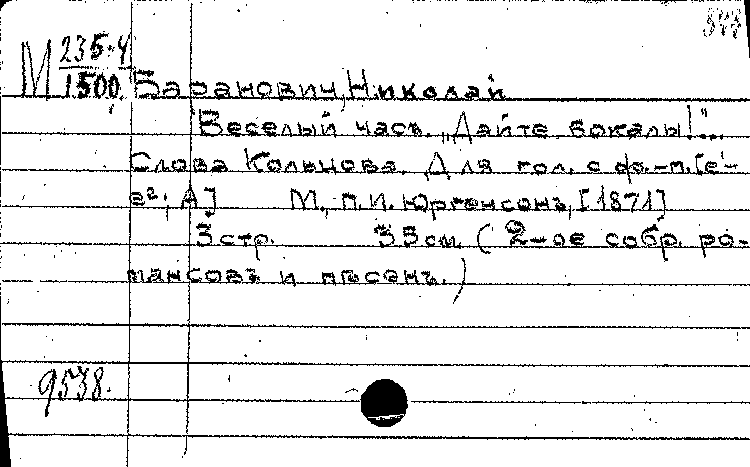 М 235-4
1500 Баранович, Николай
Веселый часъ. „Дайте бокалы!"...
Слова Кольцова. Для гол. с ф.-п. [e¹-
e²; A] М., П. И. Юргенсонъ, [1871]
3 стр. 35 см. (2-ое собр. ро-
мансовъ и пѣсенъ.)
9538.